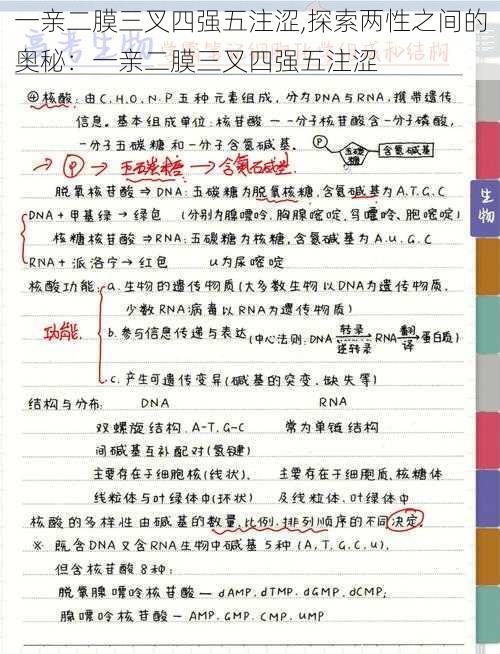 一亲二膜三叉四强五注涩,探索两性之间的
奥秘：一亲二膜三叉四强五注涩
④核酸：由C.H.O.N.P五种元素组成，分为DNA与RNA，携带遗传
信息。基本组成单位：核苷酸——一分子核苷酸含一分子磷酸，
一分子五碳糖和一分子含氮碱基。 P 五碳糖 含氮碱基
→ P → 五碳糖 → 含氮碱基.
脱氧核苷酸⇒DNA：五碳糖为脱氧核糖，含氮碱基为A.T.G.C
DNA+甲基绿→绿色 （分别为腺嘌呤、胸腺嘧啶、鸟嘌呤、胞嘧啶）
核糖核苷酸⇒RNA：五碳糖为核糖，含氮碱基为A.U.G.C
RNA+派洛宁→红色 U为尿嘧啶
核酸功能：a.生物的遗传物质（大多数生物以DNA为遗传物质，
少数RNA病毒以RNA为遗传物质）
功能. b.参与信息传递与表达（中心法则：DNA 转录 逆转录 RNA 翻译 蛋白质）
c.产生可遗传变异（碱基的突变、缺失等）
结构与分布： DNA RNA
双螺旋结构.A-T.G-C 常为单链结构
间碱基互补配对（氢键）
主要存在于细胞核（线状）、 主要存在于细胞质、核糖体
线粒体与叶绿体中（环状） 及线粒体、叶绿体中
核酸的多样性由碱基的数量.比例.排列顺序的不同决定。
※ 既含DNA又含RNA生物中碱基5种（A,T,G,C,U），
但含核苷酸8种：
脱氧腺嘌呤核苷酸—dAMP.dTMP.dGMP.dCMP;
腺嘌呤核苷酸—AMP.GMP.CMP.UMP
生物